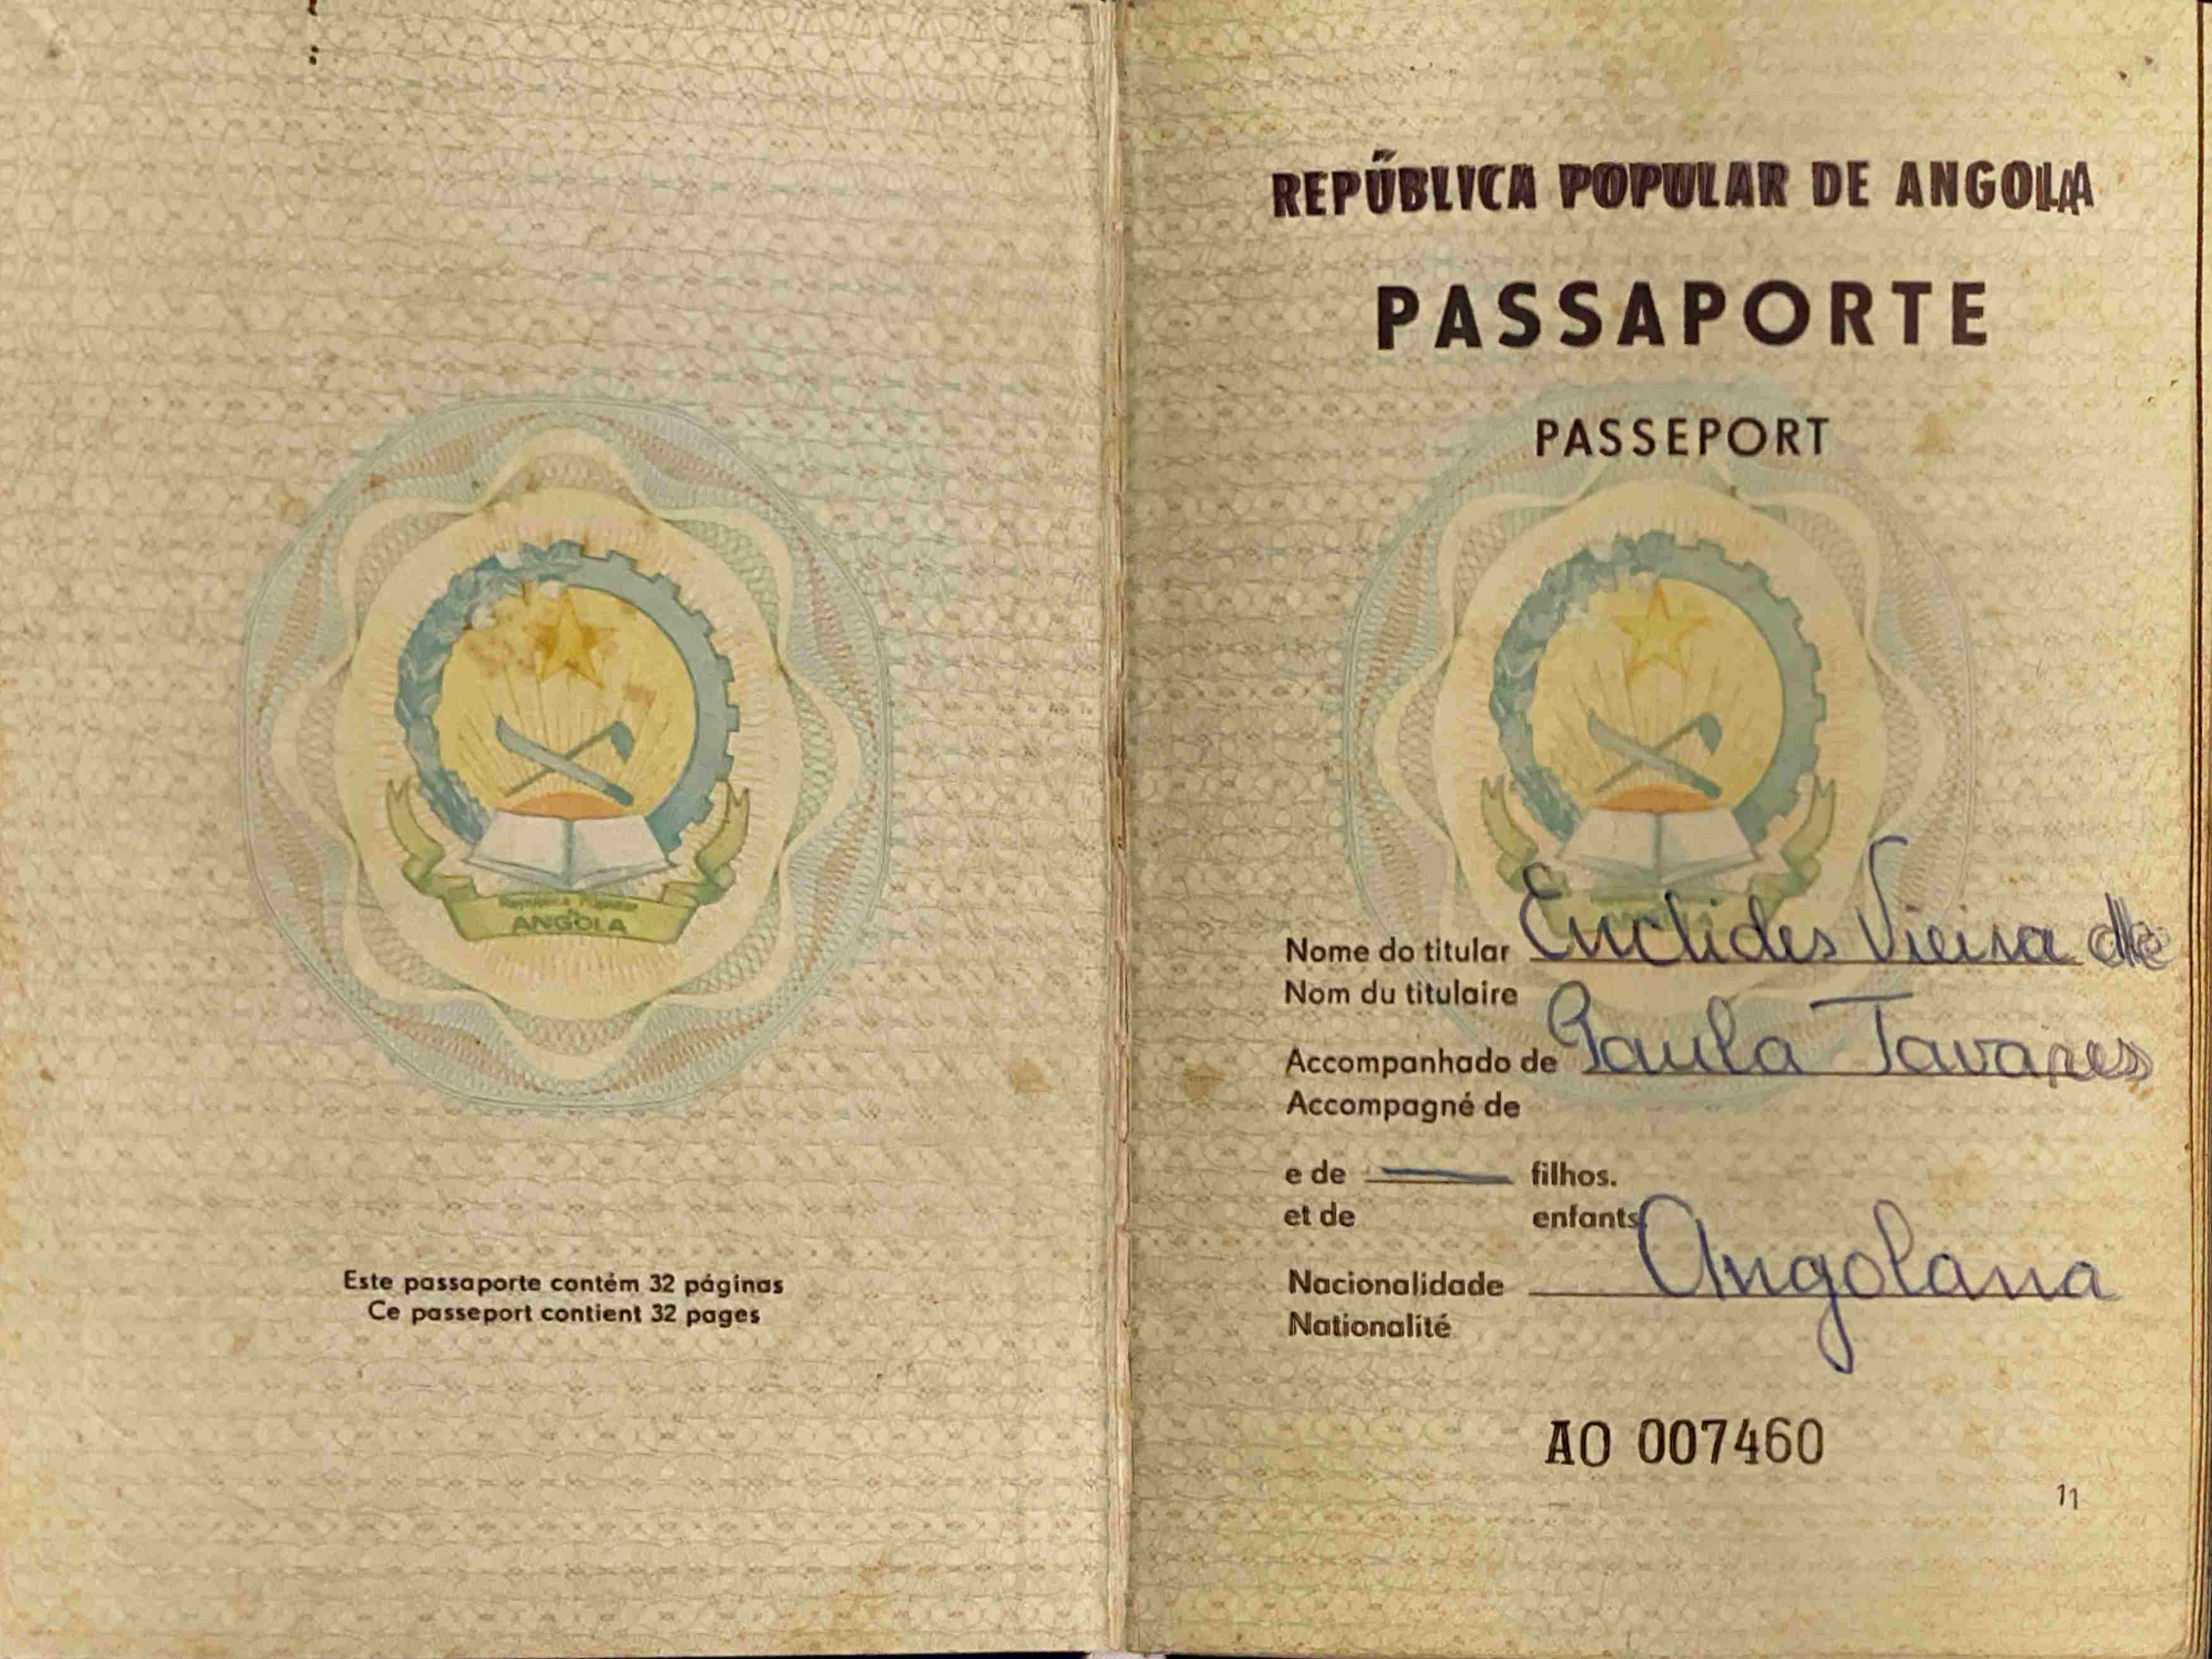 República Popular
ANGOLA
Este passaporte contém 32 páginas
Ce passeport contient 32 pages
REPÚBLICA POPULAR DE ANGOLA
PASSAPORTE
PASSEPORT
Nome do titular Euclides Vieira de
Nom du titulaire
Accompanhado de Paula Tavares
Accompagné de
e de filhos.
et de enfants
Nacionalidade Angolana
Nationalité
AO 007460
11